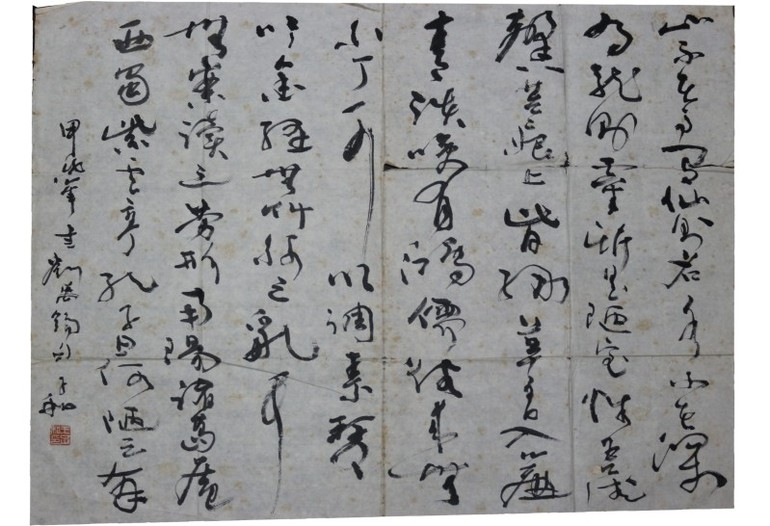 山不在高有仙則名水不在深
有龍則靈斯是陋室惟吾德
馨苔痕上階綠草色入簾
青談笑有鴻儒往來無
白丁可以調素琴
金經無竹絲之亂耳
無案牘之勞形南陽諸葛廬
西蜀雲亭孔子曰何陋之有
甲戌年書劉禹錫句子和